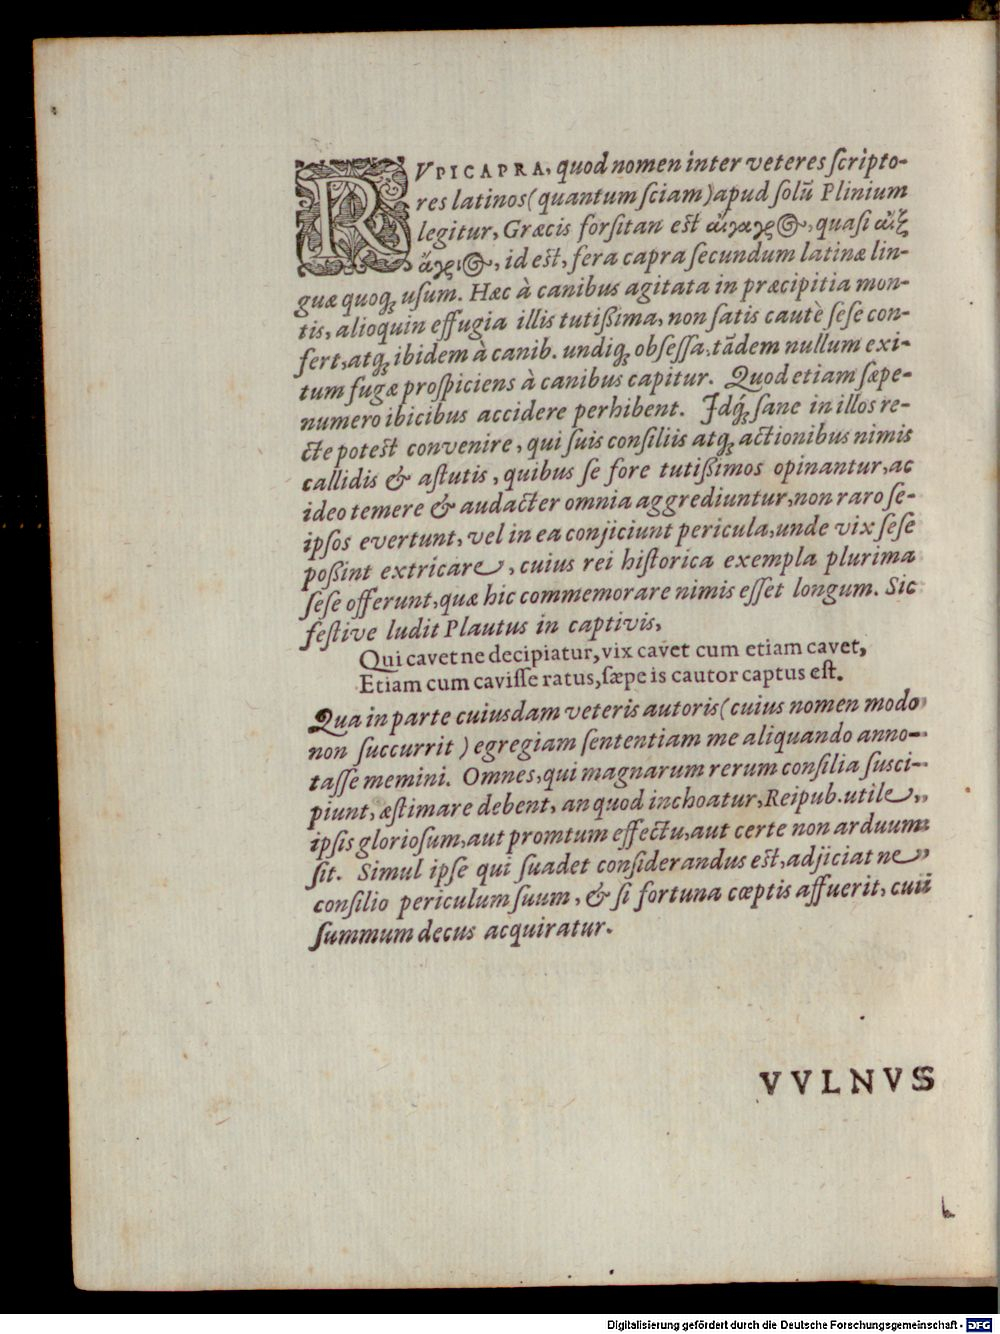 RVPICAPRA, quod nomen inter veteres scripto-
res latinos (quantum sciam) apud solũ Plinium
legitur, Græcis forsitan est αἴγαγρος, quasi αἲξ
ἄγριος, id est, fera capra secundum latinæ lin-
guæ quoq; usum. Hæc à canibus agitata in præcipitia mon-
tis, alioquin effugia illis tutißima, non satis cautè sese con-
fert, atq; ibidem à canib. undiq; obsessa, tãdem nullum exi-
tum fugæ prospiciens à canibus capitur. Quod etiam sæpe-
numero ibicibus accidere perhibent. Idq́; sane in illos re-
cte potest convenire, qui suis consiliis atq; actionibus nimis
callidis & astutis, quibus se fore tutißimos opinantur, ac
ideo temere & audacter omnia aggrediuntur, non raro se-
ipsos evertunt, vel in ea conjiciunt pericula, unde vix sese
poßint extricare, cuius rei historica exempla plurima
sese offerunt, quæ hic commemorare nimis esset longum. Sic
festive ludit Plautus in captivis,
Qui cavet ne decipiatur, vix cavet cum etiam cavet,
Etiam cum cavisse ratus, sæpe is cautor captus est.
Qua in parte cuiusdam veteris autoris (cuius nomen modo
non succurrit) egregiam sententiam me aliquando anno-
tasse memini. Omnes, qui magnarum rerum consilia susci-
piunt, æstimare debent, an quod inchoatur, Reipub. utile,
ipsis gloriosum, aut promtum effectu, aut certe non arduum
sit. Simul ipse qui suadet considerandus est, adjiciat ne
consilio periculum suum, & si fortuna cœptis affuerit, cui
summum decus acquiratur.
VVLNVS
Digitalisierung gefördert durch die Deutsche Forschungsgemeinschaft - DFG